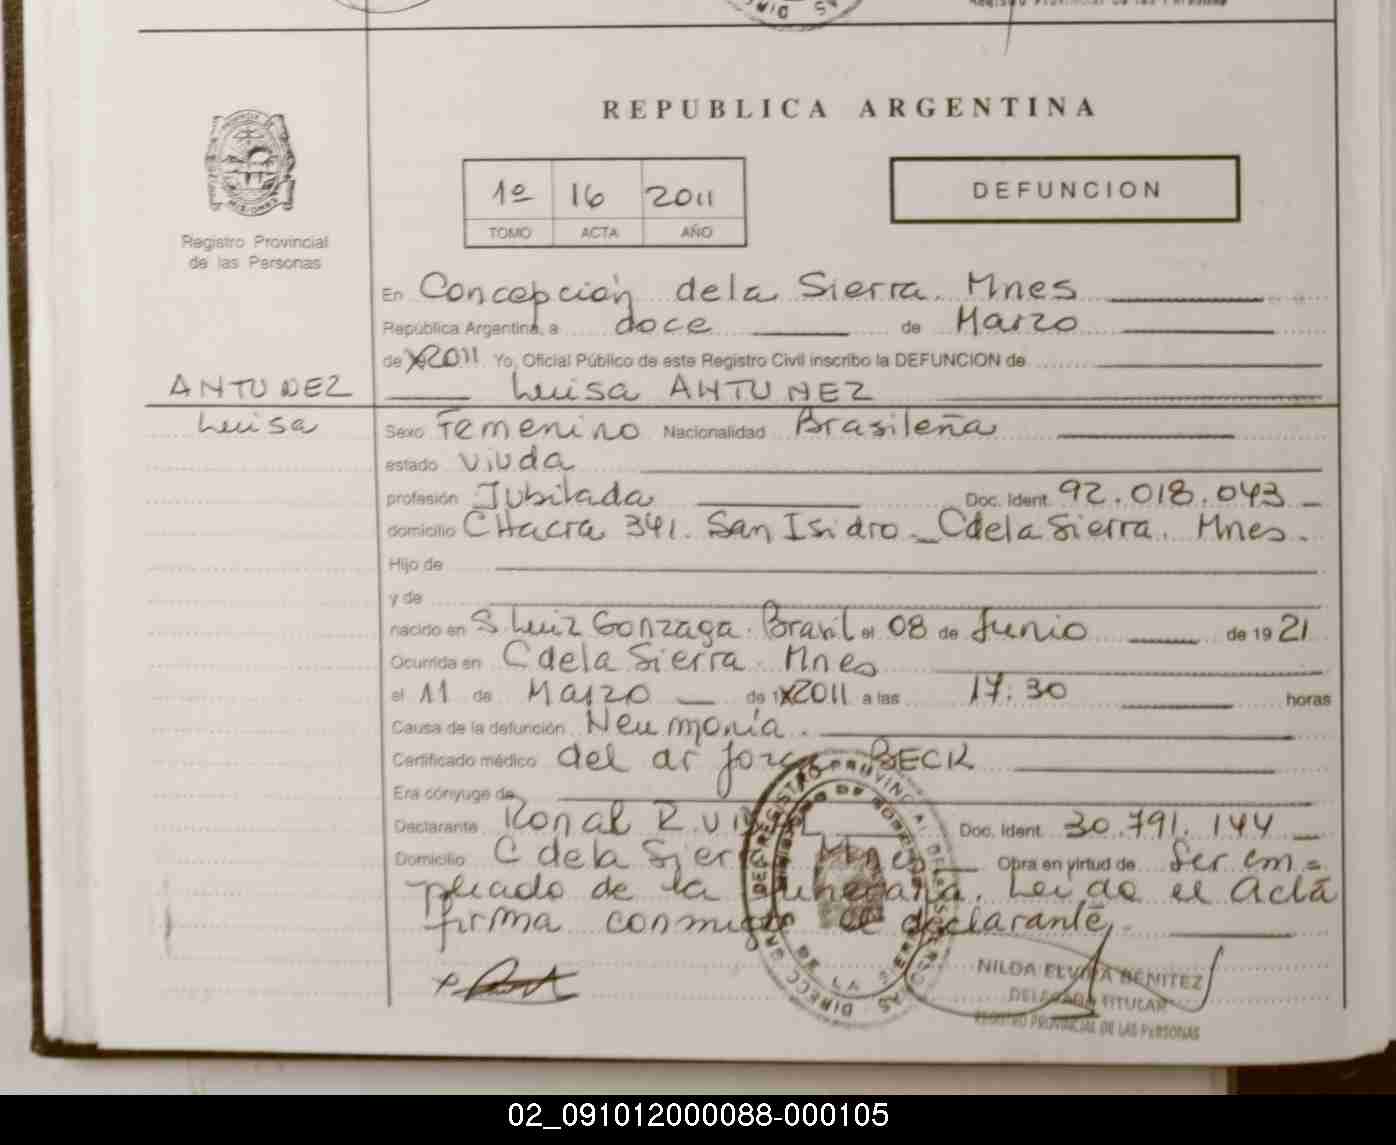 REPUBLICA ARGENTINA
1º 16 2011
TOMO ACTA AÑO
DEFUNCION
Registro Provincial
de las Personas
En Concepción de la Sierra. Mnes
República Argentina, a doce de Marzo
de 2011 Yo, Oficial Público de este Registro Civil inscribo la DEFUNCION de
ANTUNEZ Luisa ANTUNEZ
Luisa Sexo Femenino Nacionalidad Brasileña
estado Viuda
profesión Jubilada Doc. Ident. 92.018.043
domicilio CHacra 341. San Isidro - C de la Sierra. Mnes.
Hijo de
y de
nacido en S. Luiz Gonzaga. Brasil el 08 de Junio de 19 21
Ocurrida en C de la Sierra. Mnes
el 11 de Marzo de 2011 a las 17:30 horas
Causa de la defunción Neumonía.
Certificado médico del dr Jorge BECK
Era cónyuge de
Declarante Ronal R. Doc. Ident. 30.791.144
Domicilio C de la Sierra Mnes Obra en virtud de Ser em=
pleado de la funeraria. Leido el Acta
firma conmigo el declarante.
NILDA ELVIRA BENITEZ
DELEGADO TITULAR
REGISTRO PROVINCIAL DE LAS PERSONAS
02_091012000088-000105